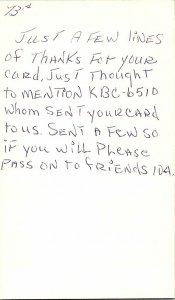 73's
Just A Few lines
of Thanks For your
card, Just Thought
to MENTION KBC-6510
Whom SENT your CARD
to us. SENT A FEW SO
iF you will PLEASE
PASS ON to FRiENDS 104.